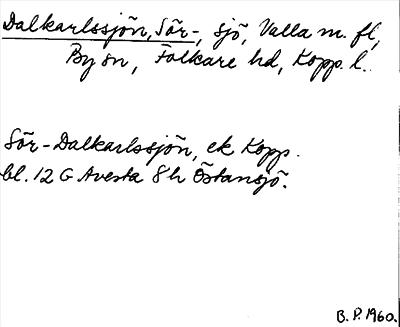 Dalkarlssjön, Sör-, sjö, Valla m. fl,
By sn, Folkare hd, Kopp. l.
Sör-Dalkarlssjön, ek Kopp.
bl. 12 G Avesta 8 h Östansjö.
B. P. 1960.